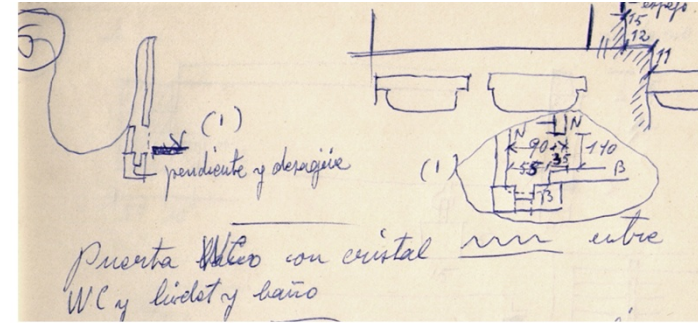 espejo
15
12
11
(1)
pendiente y desagüe
N N
90 110
55 35 B
(1)
B
Puerta con cristal entre
WC y bidet y baño